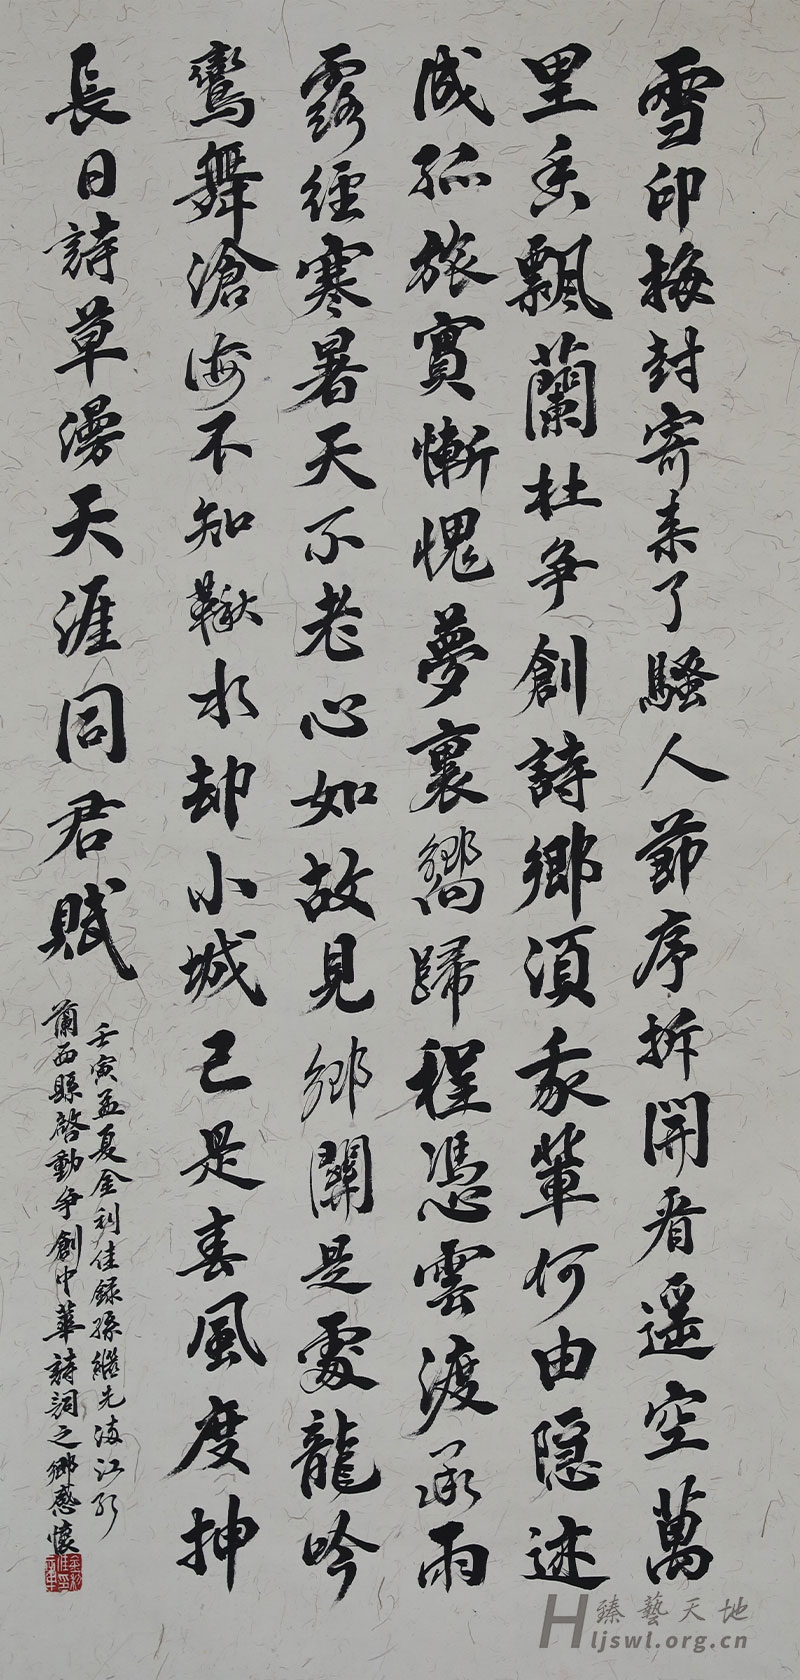 雪印梅封寄来了騷人節序拆開看遥空萬
里香飄蘭杜争創詩鄉須我輩何由隐迹
成孤旅實慚愧夢裏嚮歸程憑雲渡承雨
露經寒暑天不老心如故見鄉關是處龍吟
鸞舞滄海不知鞦水却小城已是春風度抻
長日詩草漫天涯同君賦
壬寅孟夏金利佳録孫繼先滿江红
蘭西縣啓動争創中華詩詞之鄉感懷
臻藝天地
Hljswl.org.cn